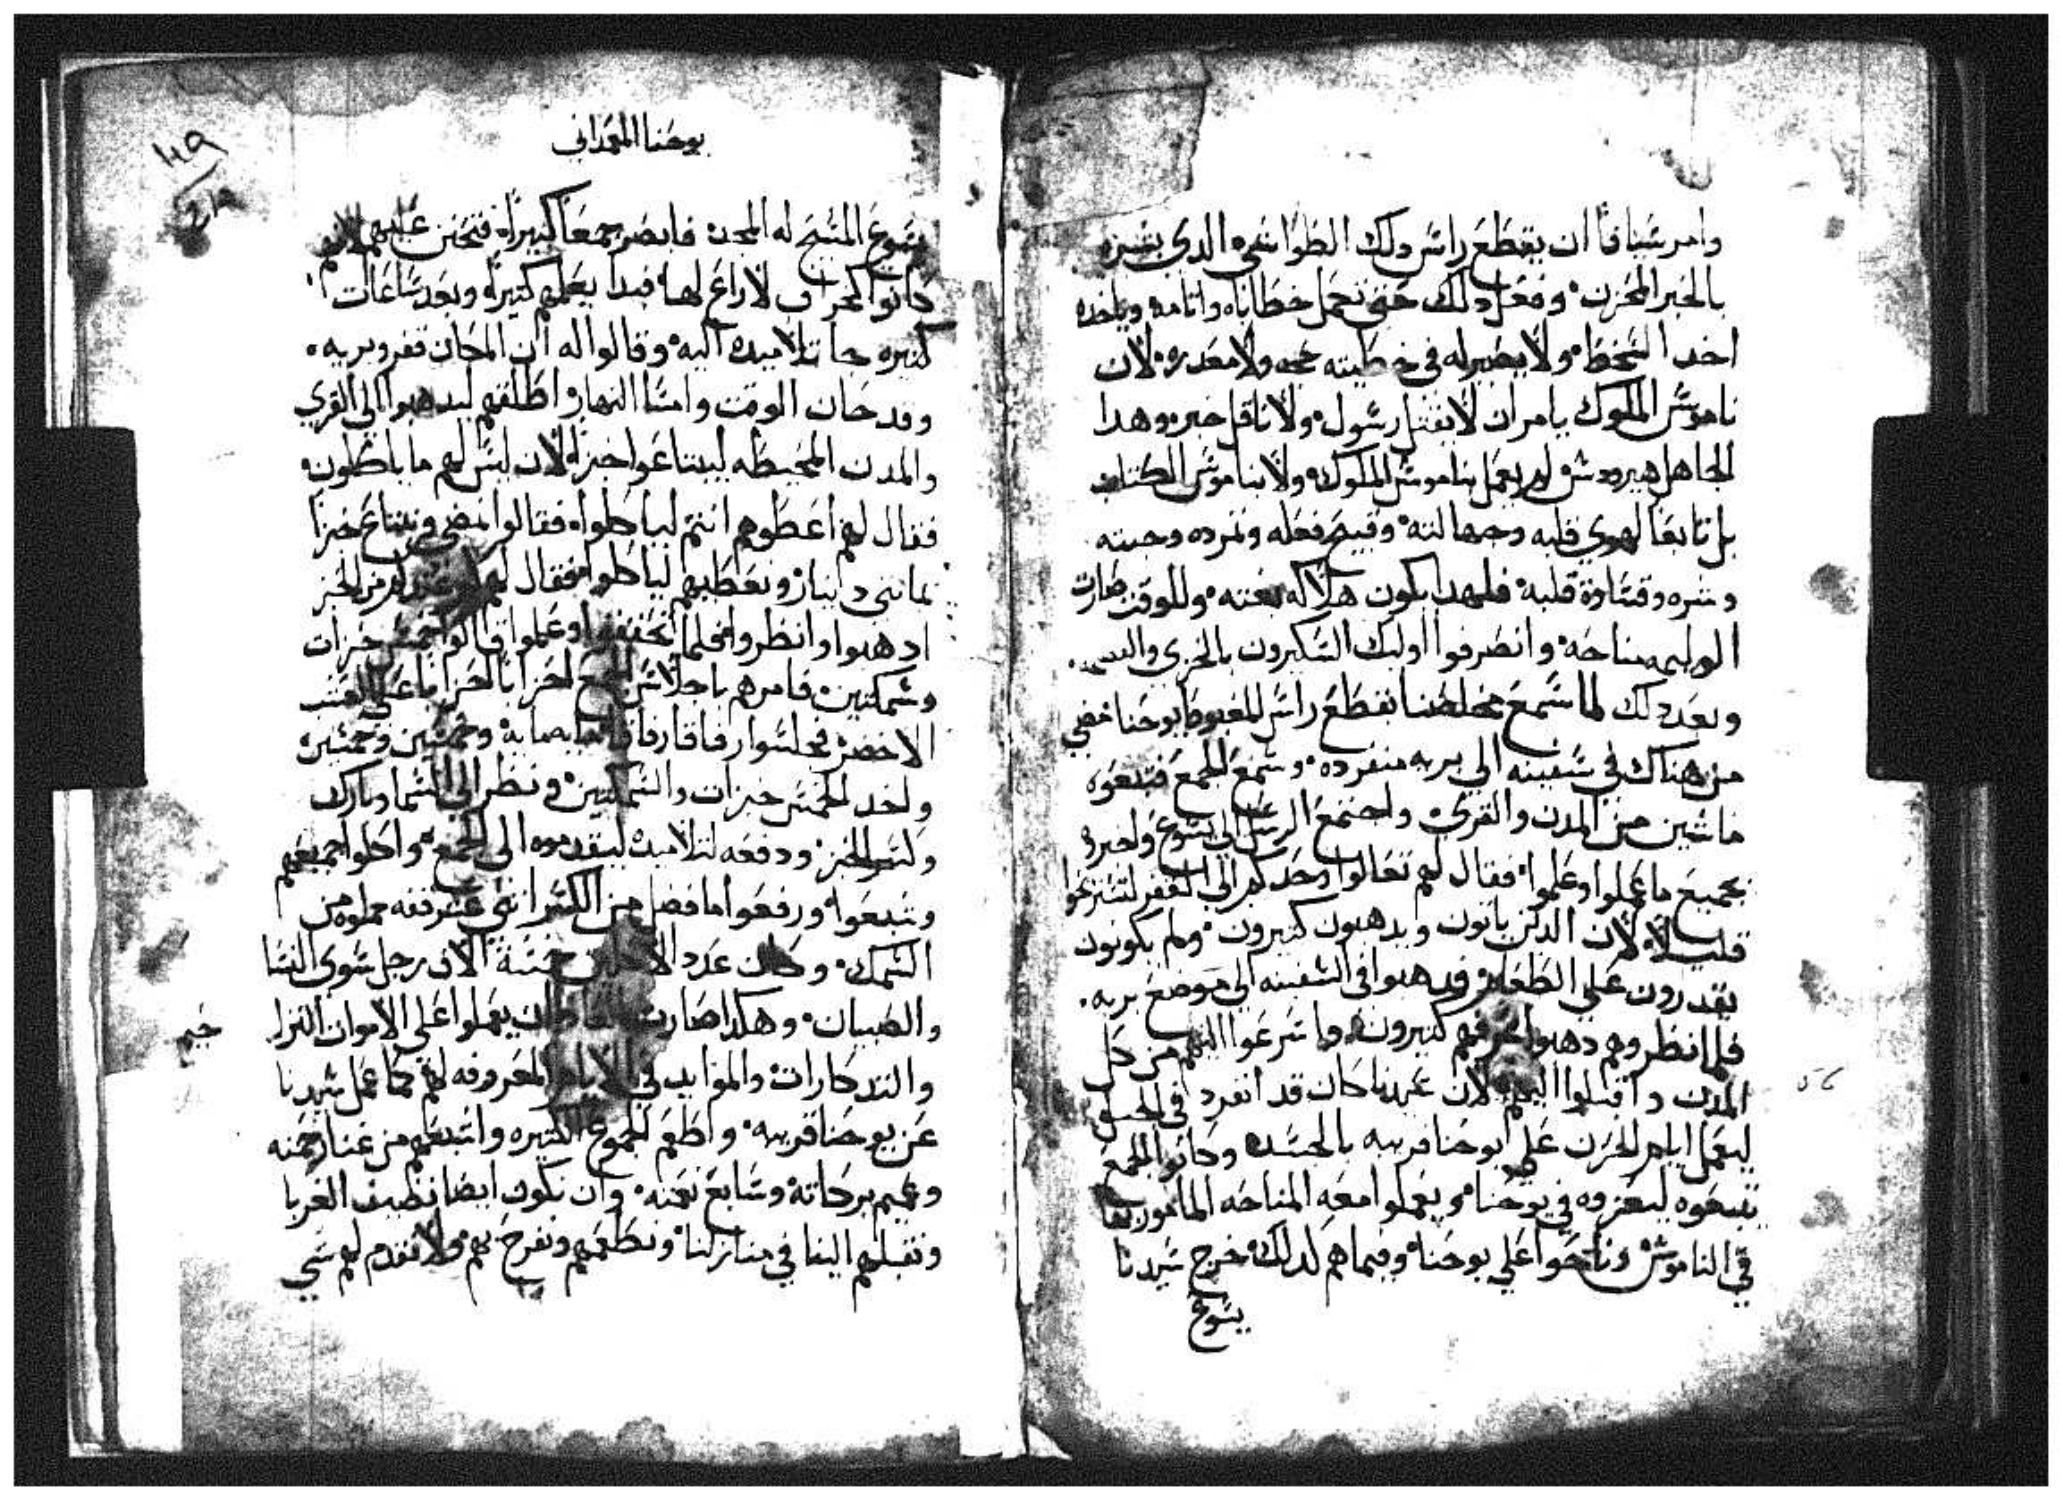 وامر سيافا ان يقطع راس دلك الطواشي الدي بشره
بالخبر المحزن. وفعل دلك حتى تحمل خطاياه واتامه وياخده
اخد السخط. ولا يصير له في خطيته حجه ولا معدره. لان
ناموس الملوك يامر ان لا يقتل رسول. ولا ناقل خبر. وهدا
الجاهل هيرودس لم يعمل بناموس الملوك. ولا بناموس الكتاب
بل تابعا لهوي قلبه وجهالته. وقبيح فعله وتمرده وخبته
وشره وقساوة قلبه. فلهدا يكون هلاكه بغته. وللوقت صارت
الوليمه مناحه. وانصرفوا اوليك السكيرون بالخزي
وبعد دلك لما سمع مخلصنا بقطع راس المغبوط يوحنا مضي
من هناك في سفينه الي بريه منفرده. وسمع الجمع فتبعوه
ماشيين من المدن والقري. واجتمع الرسل الي يسوع واخبروه
بجميع ما عملوا وعلموا. فقال لهم تعالوا وحدكم الي القفر لتستريحوا
قليلا. لان الدين ياتون ويدهبون كتيرون. ولم يكونون
يقدرون علي الطعام. فدهبوا في السفينه الي موضع بريه.
فلما نظروهم دهبوا عرفهم كتيرون. واسرعوا اليهم من كل
المدن واقبلوا اليهم. لان سيدنا كان قد انفرد في الجبل
ليعمل ايام الحزن علي يوحنا قريبه بالجسد. وكانوا الجمع
تبعوه ليعزوه في يوحنا. ويعملوا معه المناحه المامور بها
في الناموس وناحوا علي يوحنا. وفيماهم لدلك. خرج سيدنا
يسوع
يوحنا المعمداني
يسوع المسيح له المجد. فابصر جمعا كبيرا. فتحنن عليهم لانهم
كانوا كخراف لا راع لها. فبدا يعلمهم كتيرا. وبعد ساعات
كتيره جا تلاميده اليه. وقالوا له ان المكان قفر وبريه.
وقد حان الوقت وامسا النهار واطلقهم ليدهبوا الي القري
والمدن المحيطه ليبتاعوا خبزا. لان ليس لهم ما ياكلون.
فقال لهم اعطوهم انتم لياكلوا. فقالوا نمضي ونبتاع خبزا
بمايتي دينار. ونعطيهم لياكلوا. فقال لهم من الخبز
ادهبوا وانظروا. فلما تحققوا وعلموا قالوا خمس خبزات
وسمكتين. فامرهم باجلاس الجمع احزابا احزابا علي العشب
الاخضر. فجلسوا رفاقا رفاقا مايه مايه. وخمسين وخمسين
واخد الخمس خبزات والسمكتين. ونظر الي السما وبارك
وكسر الخبز. ودفعه لتلاميده ليقدموه الي الجمع. واكلوا جميعهم
وشبعوا. ورفعوا ما فضل من الكسر اتني عشر قفه مملوه من
السمك. وكان عدد الاكلين خمسة الاف رجل سوي النسا
والصبيان. وهكدا صارت ان يعملوا علي الاموات الترا
والتدكارات. والموايد في الايام المعروفه لهم كما عمل سيدنا
عن يوحنا قريبه. واطعم الجموع الكتيره واشبعهم من غنا رحمته
وعميم بركاته. وسابغ نعمته. وان نكون ايضا نضيف الغربا
ونقبلهم الينا في منازلنا. ونطعمهم ونفرح بهم. ولا نقدم لهم شي